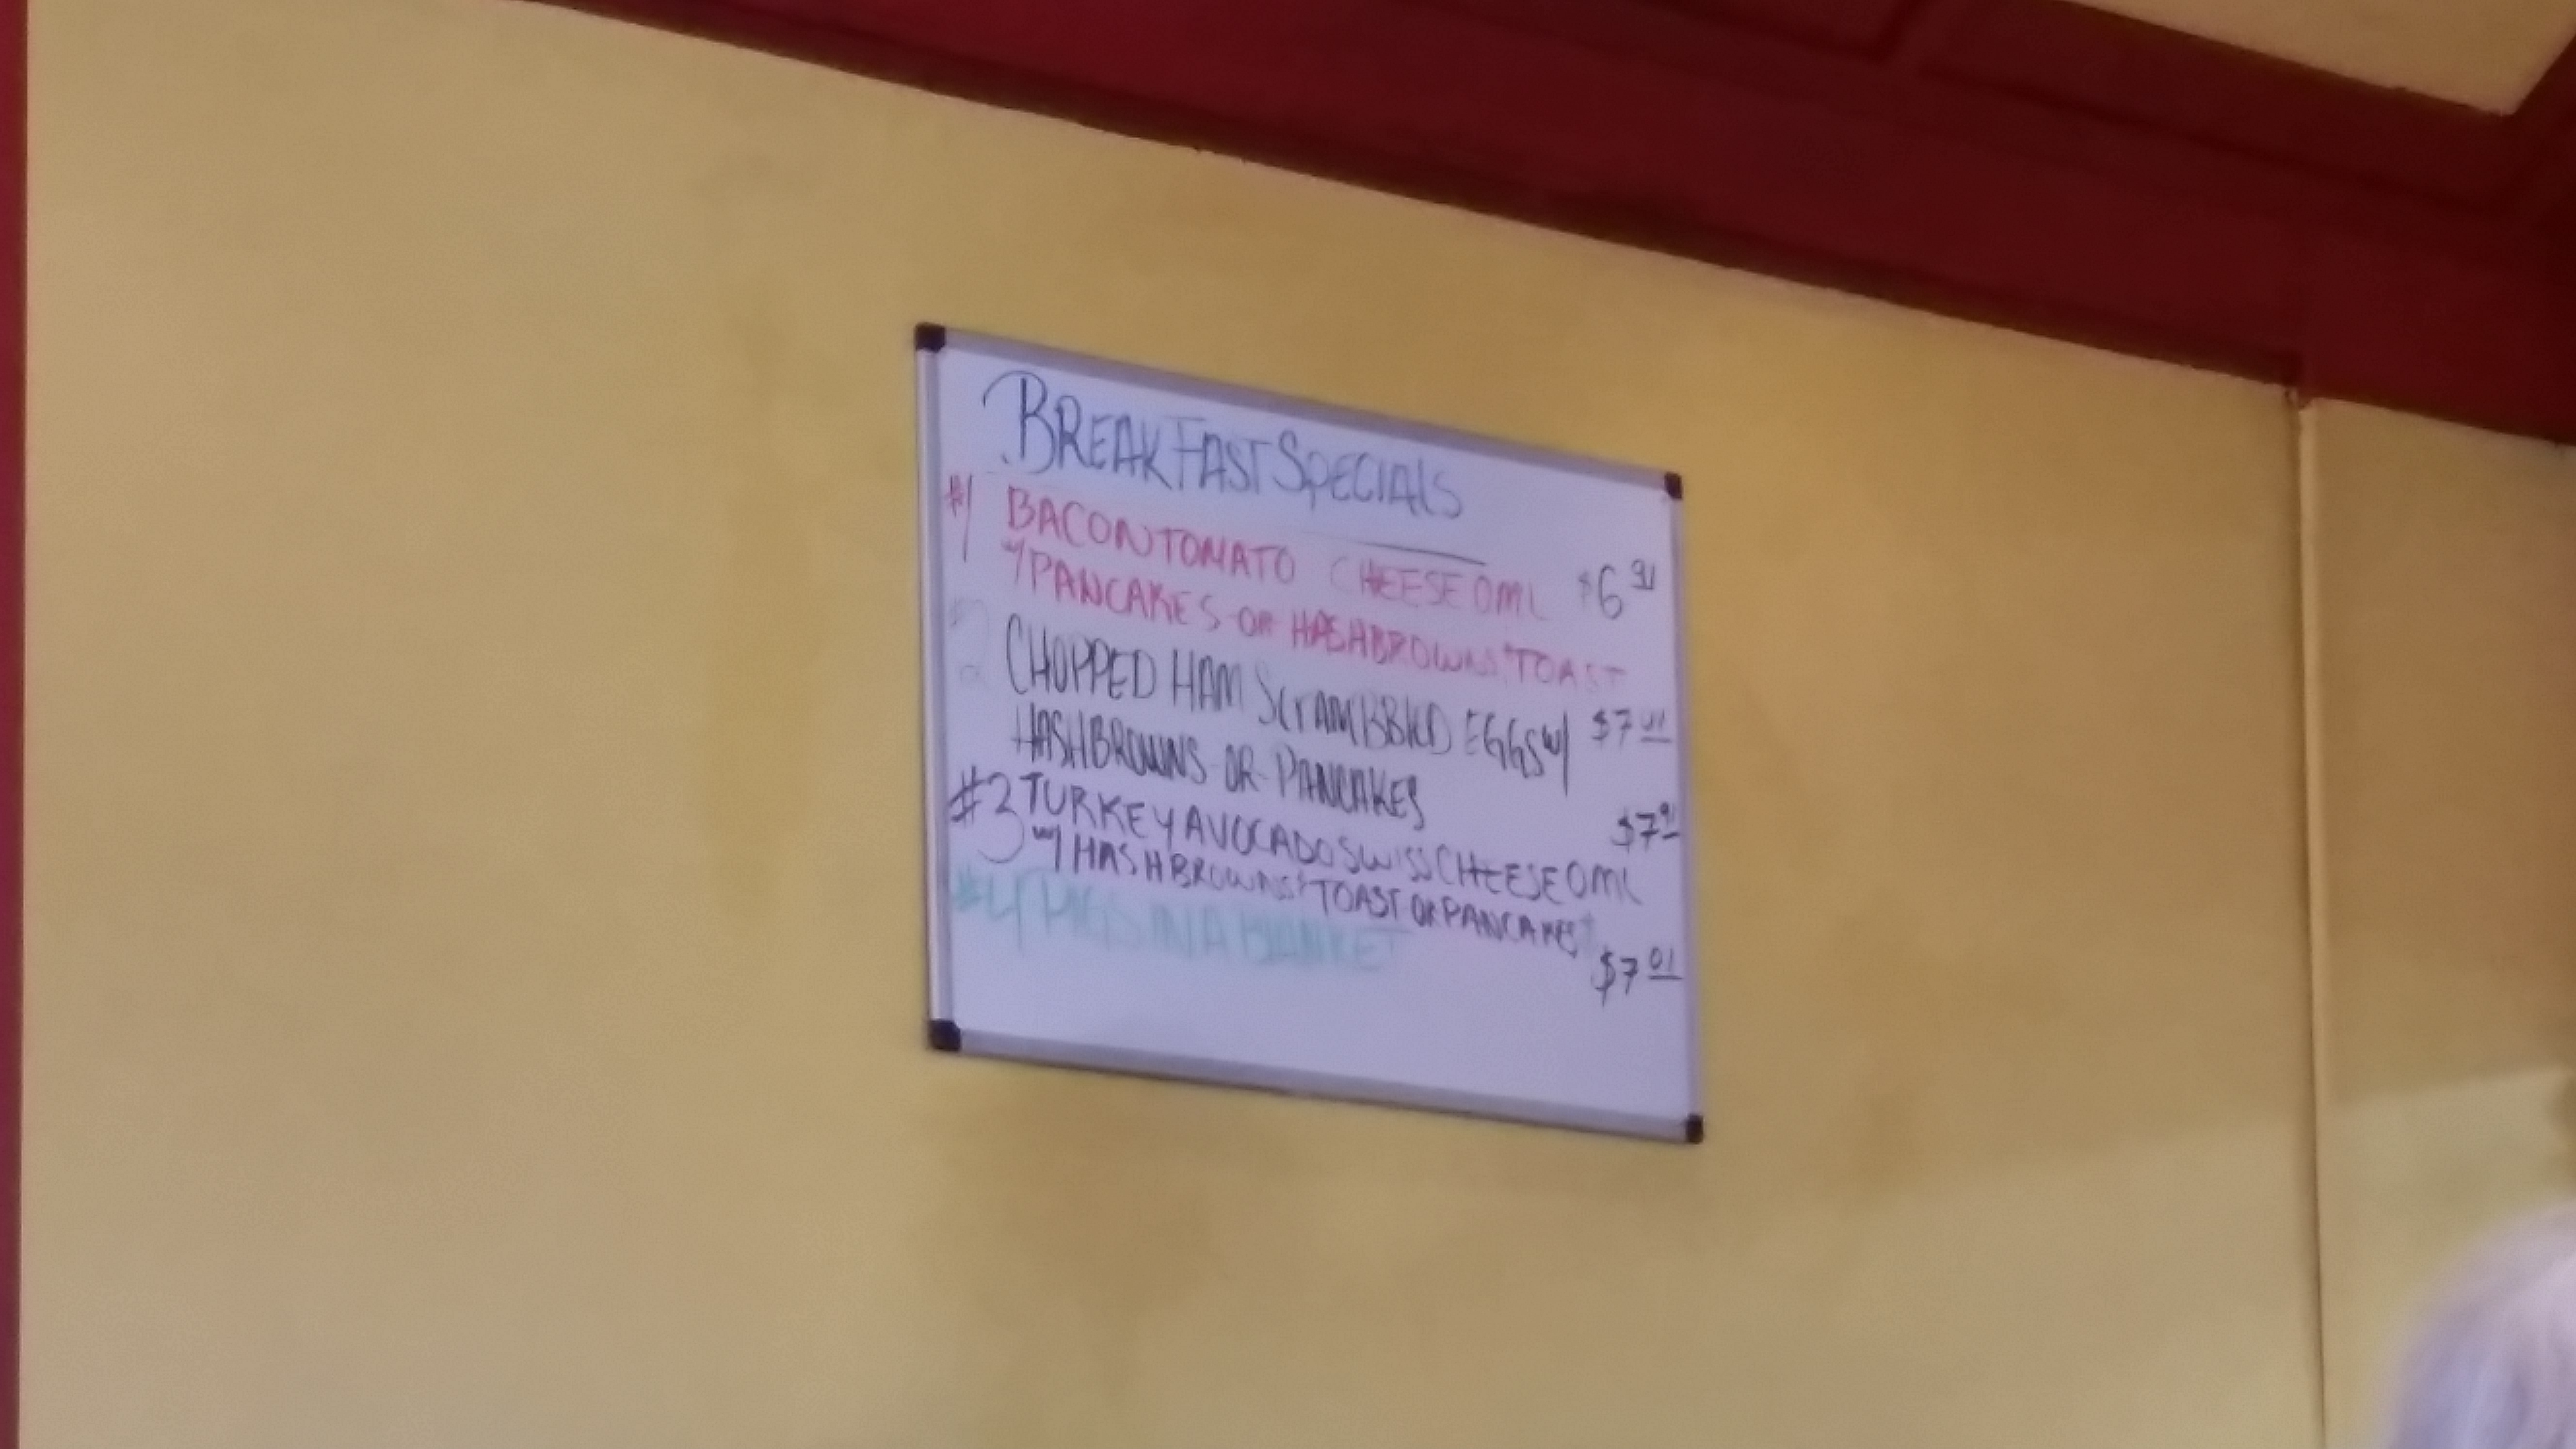 BREAKFAST SPECIALS
#1 BACON TOMATO CHEESE OML $6 91
w/ PANCAKES OR HASHBROWNS & TOAST
#2 CHOPPED HAM ScrAMBBLD EGGS w/ $7 01
HASHBROWNS OR PANCAKES
#3 TURKEY AVOCADO SWISS CHEESE OML $7 91
w/ HASHBROWNS & TOAST OR PANCAKES
#4 PIGS IN A BLANKET $7 01